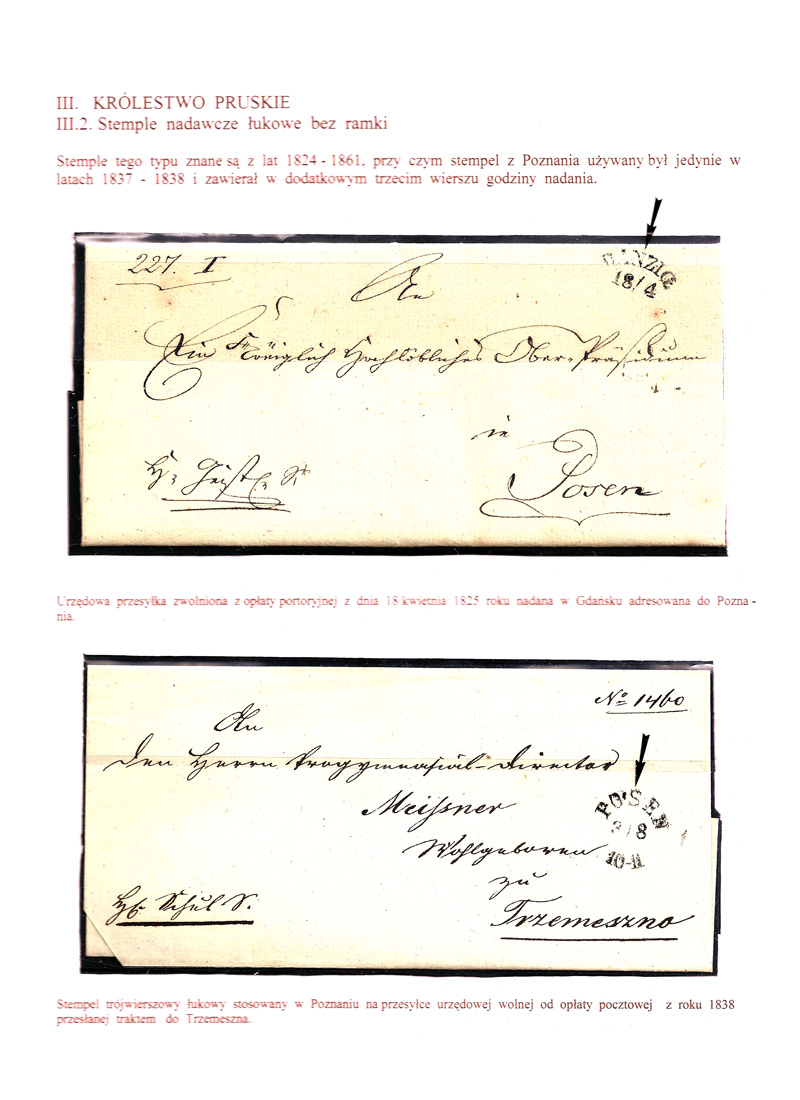 III. KRÓLESTWO PRUSKIE
III.2. Stemple nadawcze łukowe bez ramki
Stemple tego typu znane są z lat 1824 - 1861, przy czym stempel z Poznania używany był jedynie w
latach 1837 - 1838 i zawierał w dodatkowym trzecim wierszu godziny nadania.
227. I
DANZIG
18/4
An
Ein Königlich Hochlöbliches Ober-Präsidium
in
Posen
Urzędowa przesyłka zwolniona z opłaty portoryjnej z dnia 18 kwietnia 1825 roku nadana w Gdańsku adresowana do Pozna -
nia.
No 1460
An
den Herrn Progymnasial-Director
Meißner
POSEN
/8
10-11
Wohlgeboren
zu
Schul S.
Trzemeszno
Stempel trójwierszowy łukowy stosowany w Poznaniu na przesyłce urzędowej wolnej od opłaty pocztowej z roku 1838
przesłanej traktem do Trzemeszna.